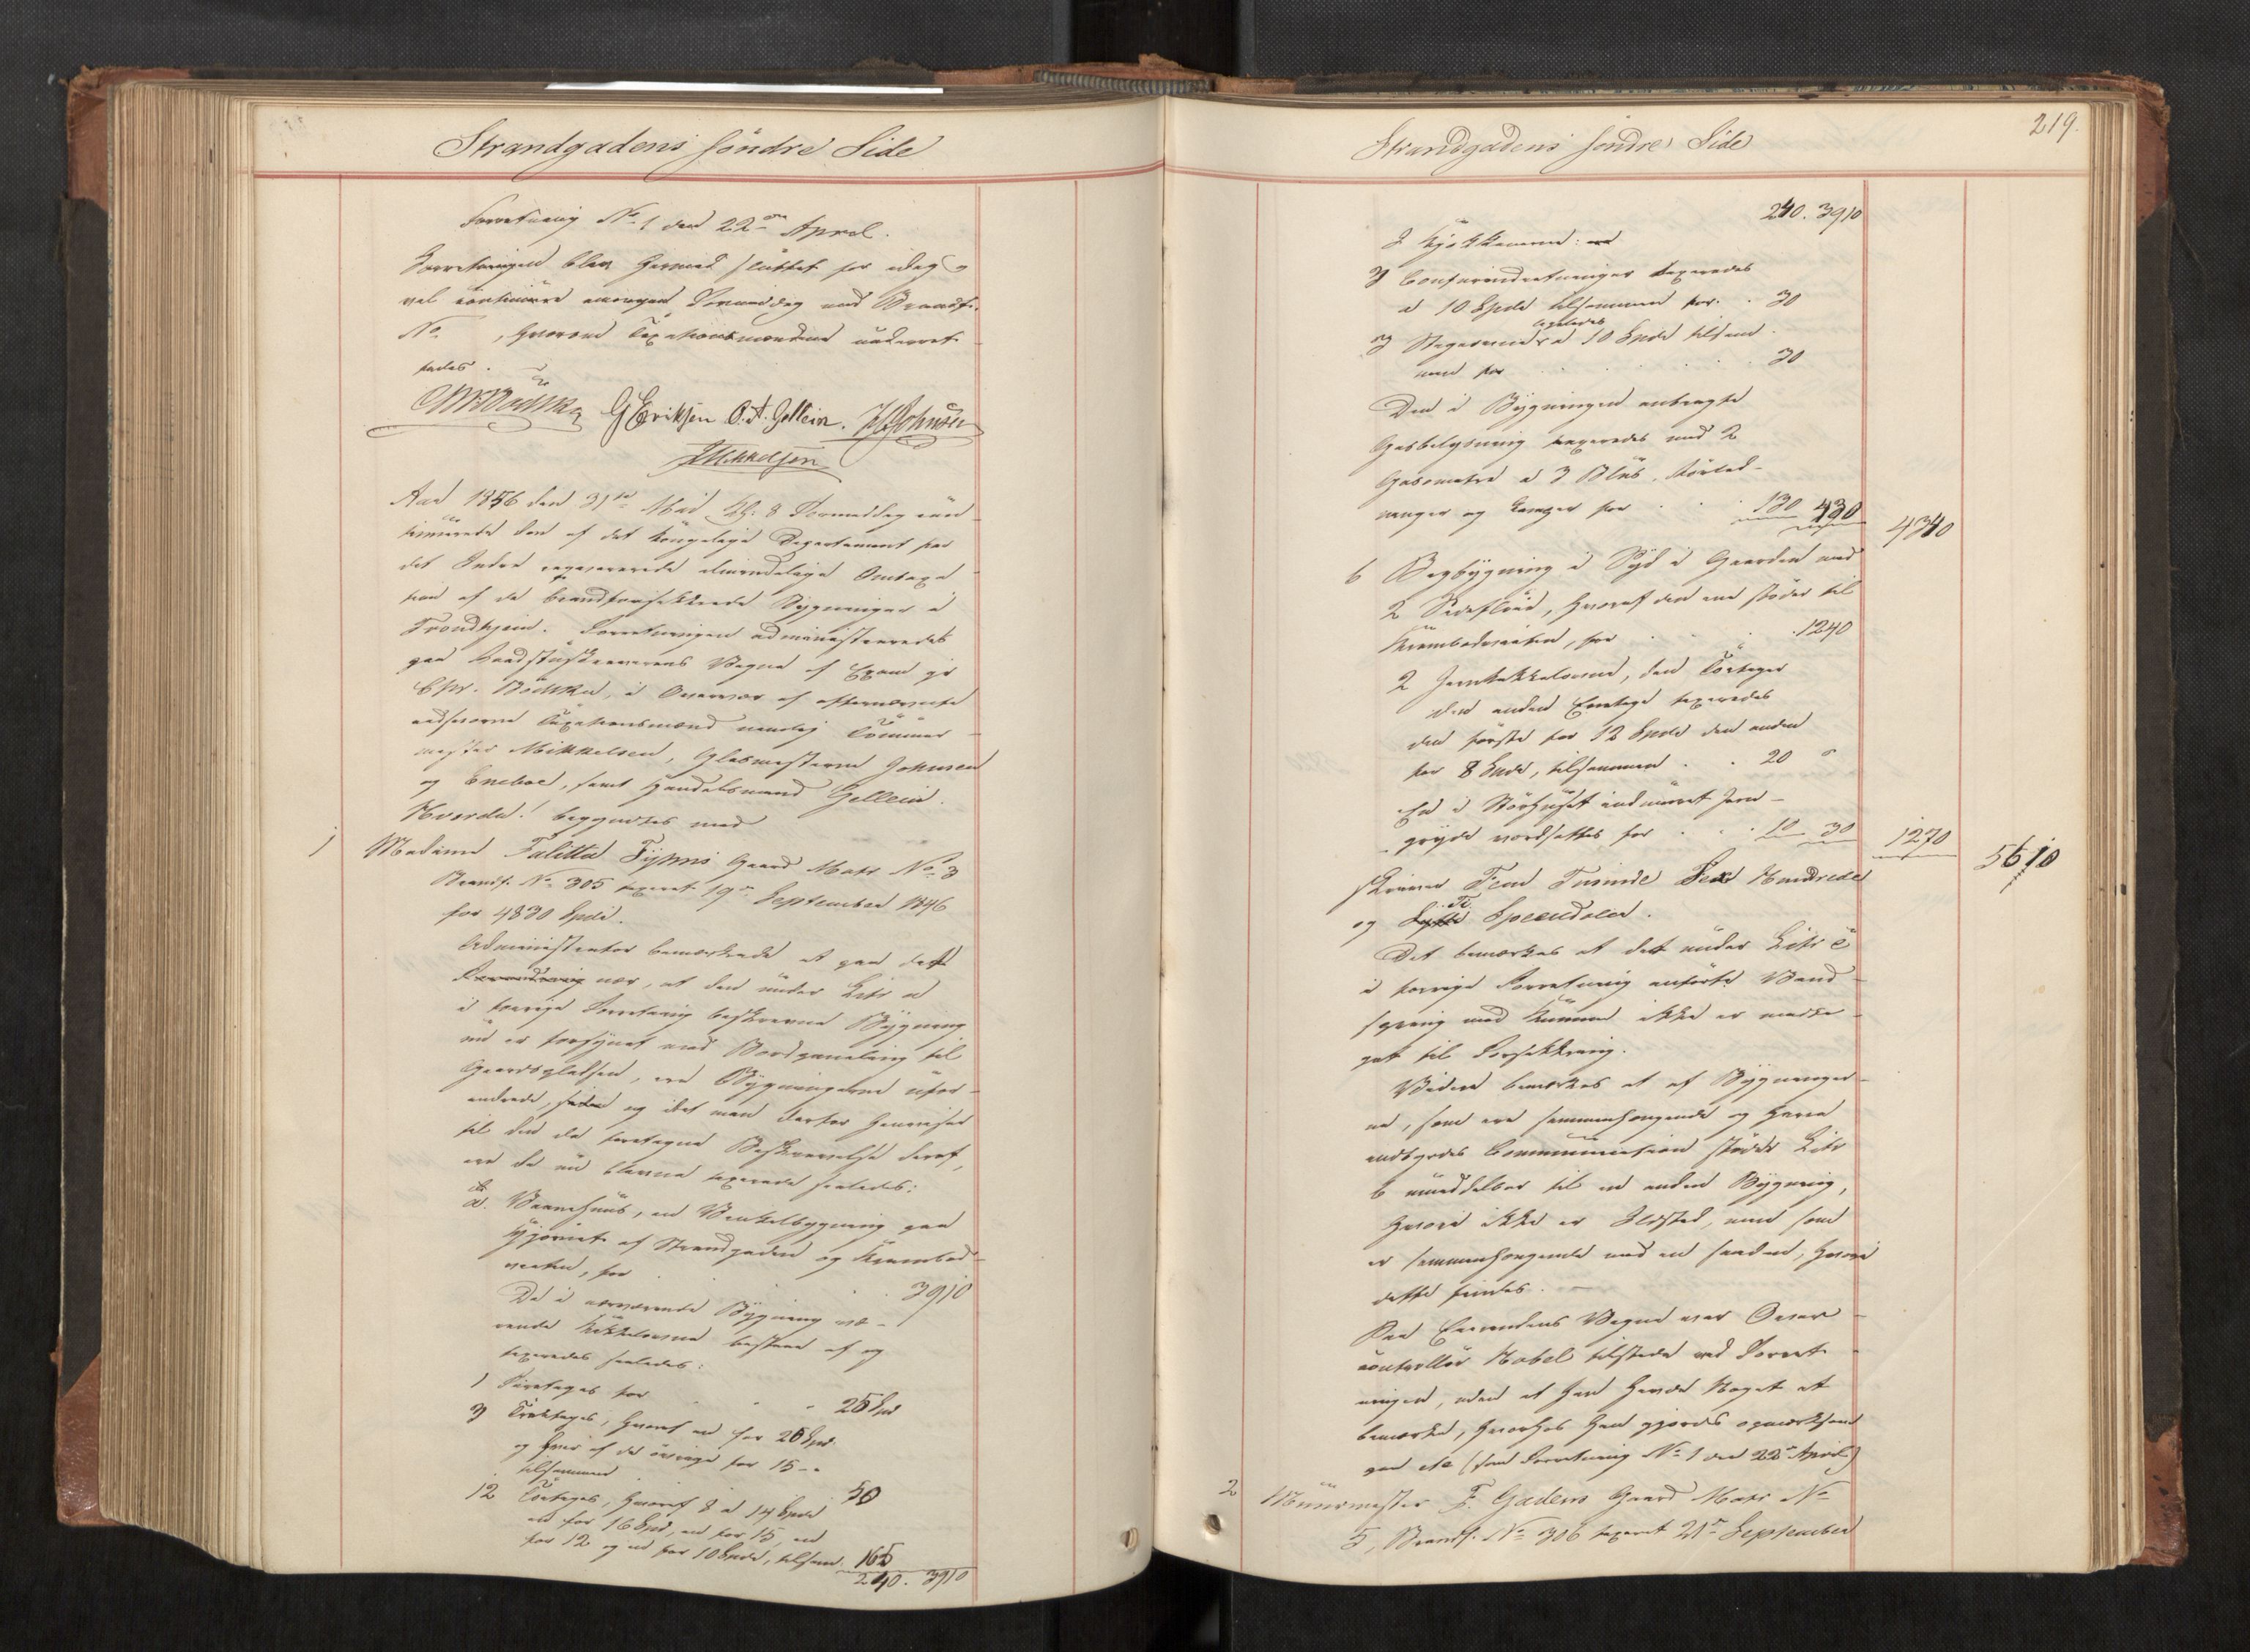 Strandgadens søndre Side
Forretning No 1 den 22de April.
Forretningen blev hermed sluttet for idag
vel continuere morgen Formiddag med Brandf.
No , hvorom Taxationsmændene underret
tedes.
G Eriksen O. A. Gellein. Johnsen
JMikkelsen
Aar 1856 den 31te Mai Kl. 8 Formiddag con-
tinuerede den af det kongelige Departement for
det Indre almindelige Omtaxa
tion af de brandforsikkrede Bygninger i
Trondhjem. Forretningen administreredes
paa Raadstueskriverens Vegne af Exam. jur
Chr. Bödtker, i Overvær af efternævnte
edsvorne Taxationsmænd nemlig Tömmer-
mester Mikkelsen, Glasmesterne Johnsen
og Eneboe, samt Handelsmand Gellein.
Hvorda! begyndtes med
1 Madame Talitta Matr No 3
Brandf. No 305 taxeret 19de September 1846
for 4830 Spd.
Administrator bemærkede at paa det
Forandring nær, at den under Litr a
i forrige Forretning beskrevne Bygning
nu er forsynet med Bordpaneling til
Gaardspladsen, ere Bygningerne ufor-
andrede, siden og idet man derfor henviser
til den da foretagne Beskrivelse deraf,
ere de nu blevne taxerede saaledes:
a. Vaanehuus, en Vinkelbygning paa
Hjörnet af Strandgaden og Krambod-
veiten, for 3910
De i nærværende Bygning væ-
rende Kakkelovne bestaae af og
taxeredes saaledes:
1 Fireetages for 25 Spd
3 Treetages, hvoraf en for 20 Spd.
og hver af de øvrige for 15 -
tilsammen 50
12 Toetages, hvoraf 8 a 14 Spd
en for 16 Spd, en for 15, en
for 12 og en for 10 Spd, tilsam. 165
240. 3910
219.
Strandgadens søndre Side
240. 3910
I Kjøkkenerne:
3 Comfurindretninger taxeredes
a 10 Spd tilsammen for 30
3 Stegeovne ligeledes a 10 Spd tilsam
men for 30
Den i Bygningen anbragte
Gasbelysning taxeredes med 2
Gasometre a 3 Blus, Rörled-
ninger og Lamper for 130 430 4340
b Bagbygning i Syd i Gaarden med
2 Sideflöie, hvoraf den ene støder til
Kramboedveiten, for 1240
2 Jernkakkelovne, den Toetages
den anden Eenetages taxeredes
den første for 12 Spd den anden
for 8 Spd, tilsammen 20
En i Störhuset indmuret Jern-
gryde værdsættes for 10 30 1270 5610
skriver Fem Tusinde Sex Hundrede
og Ti Speciedaler.
Det bemærkes at det under Litr c
i forrige Forretning anførte Vand-
spring med Kumme ikke er
get til Forsikkring.
Videre bemærkes at af Bygninger-
ne, som ere sammenhængende og have
indbyrdes Communication støder Litr
b umiddelbar til en anden Bygning,
hvori ikke er Ildsted, men som
er sammenhængende med en saadan, hvori
dette findes.
Paa Eierindens Vegne var Over-
controllör Habel tilstede ved Forret-
ningen, uden at han havde Noget at
bemærke, hvorhos han gjordes opmærksom
paa etc (som Forretning No 1 den 22de April)
2 Muurmester F. Gadens Gaard Matr No
5, Brandf. No 306 taxeret 21de September